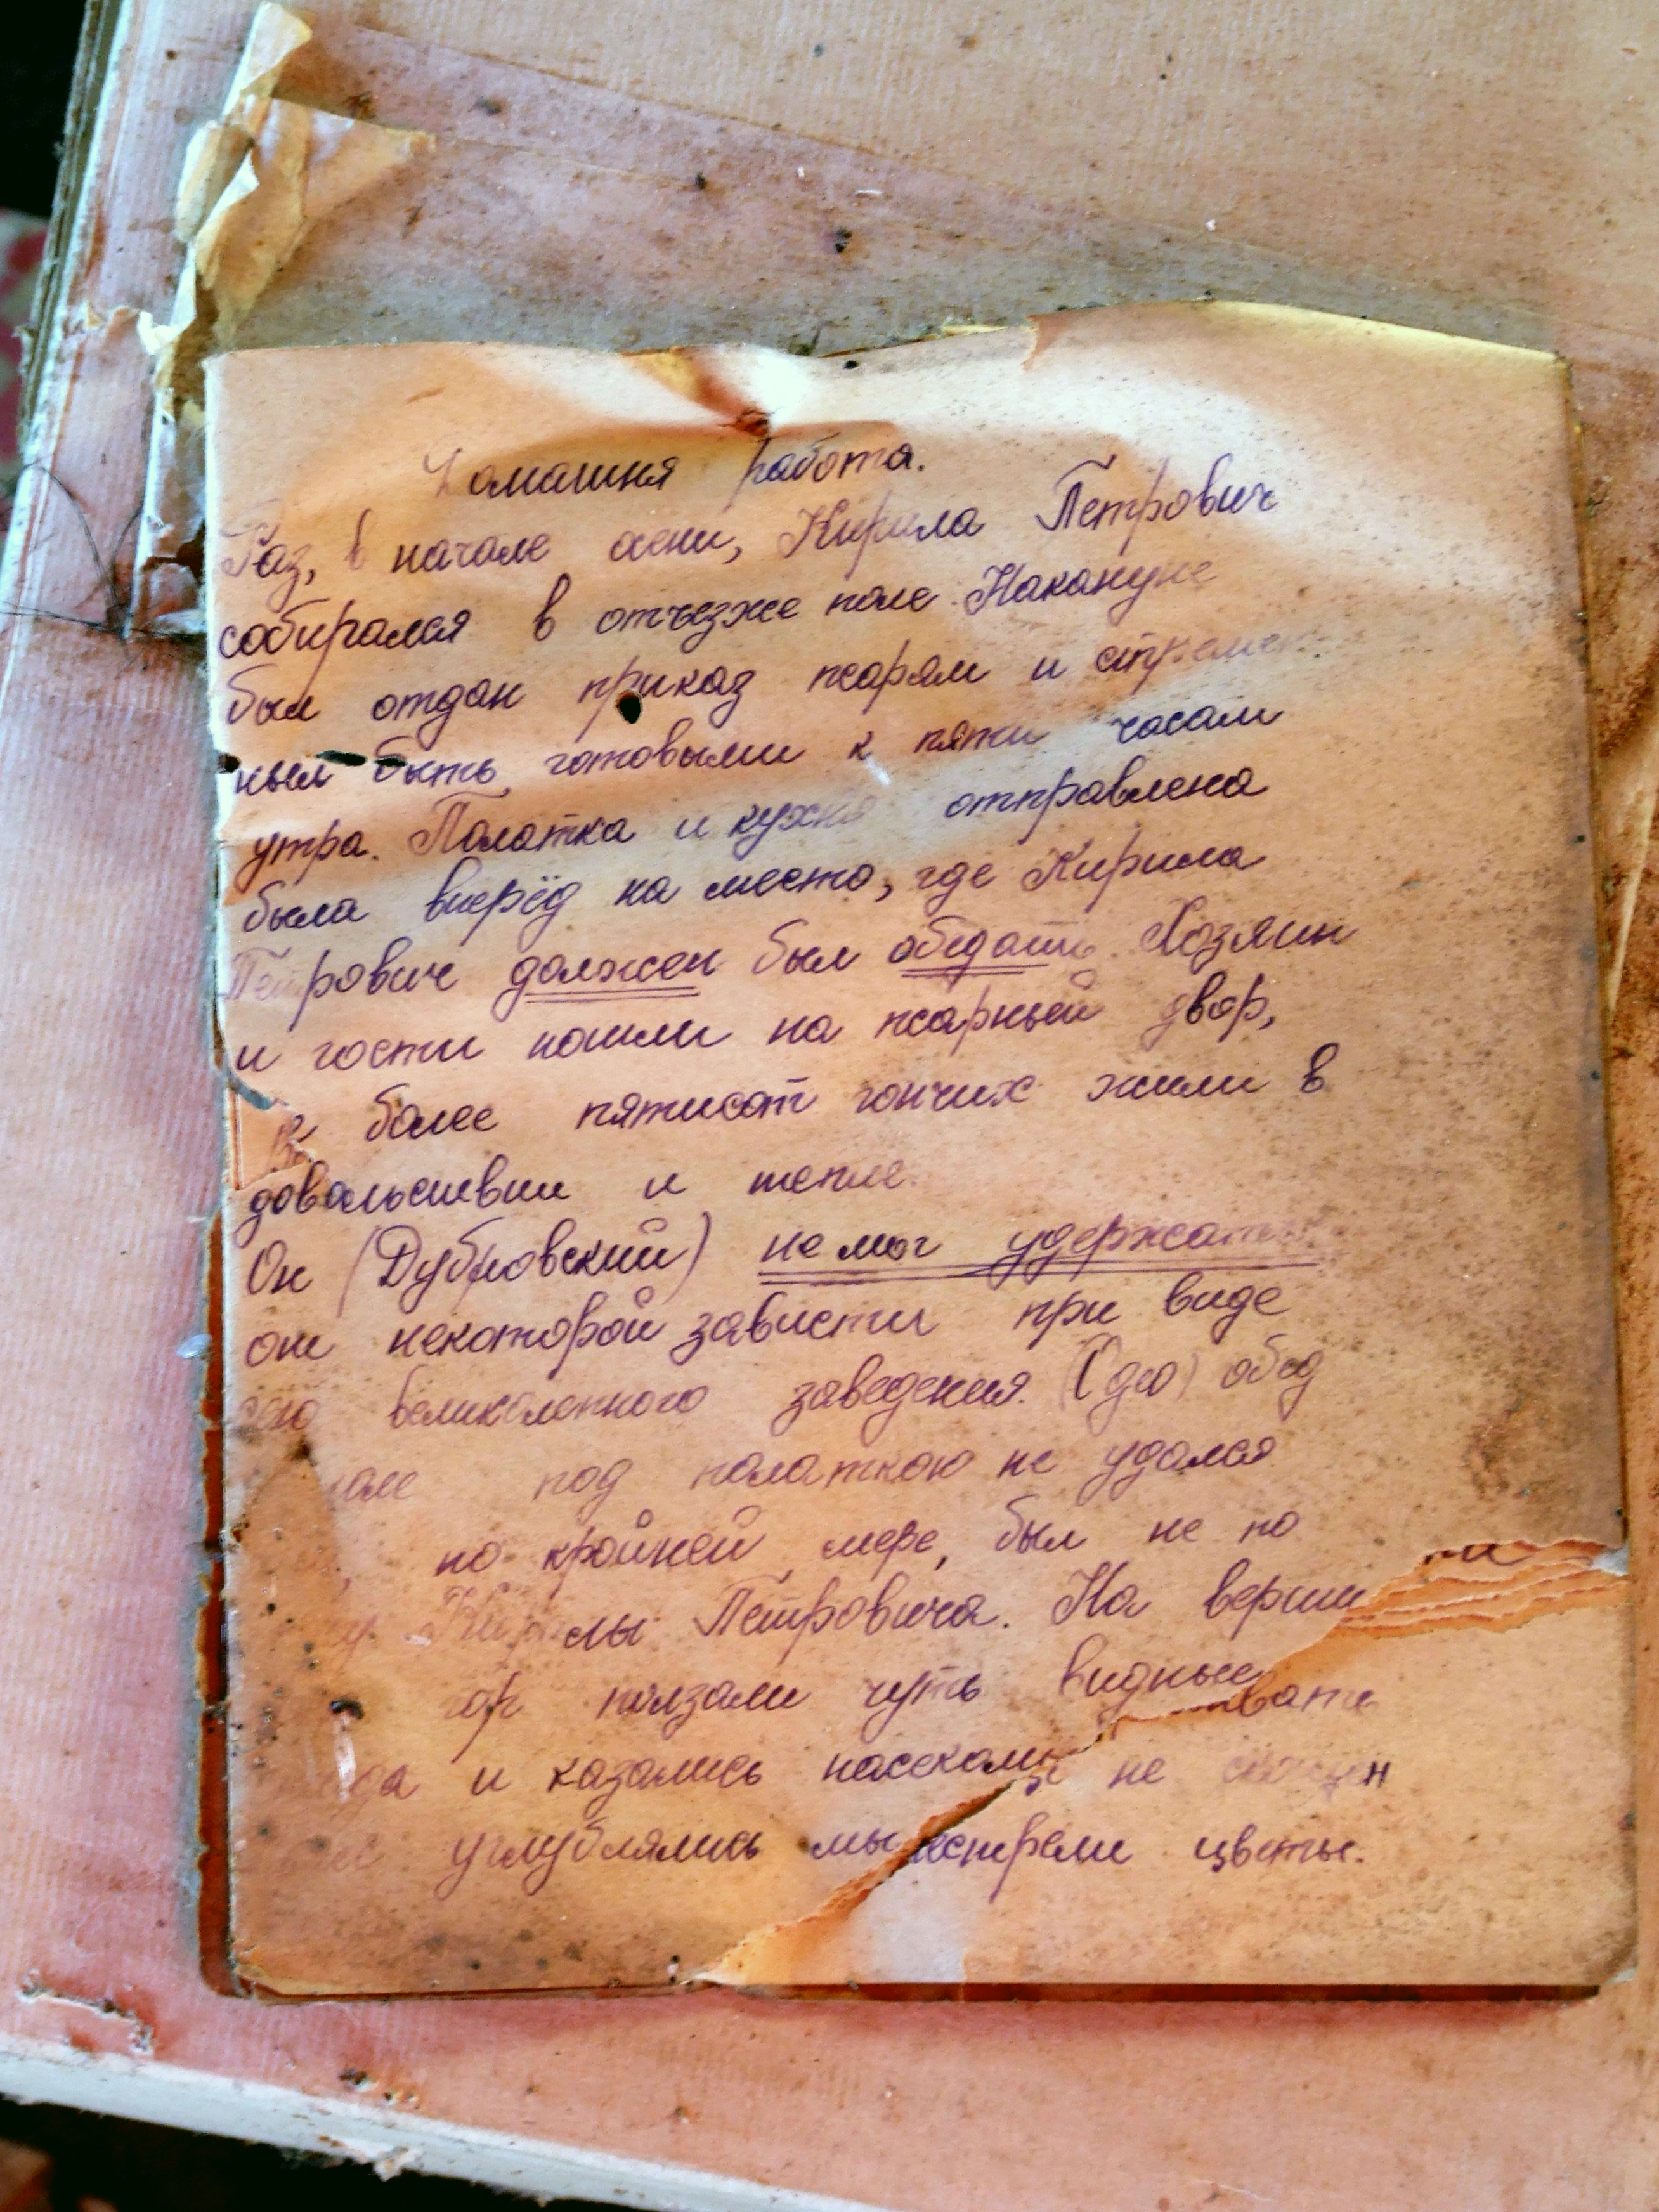 Домашня работа.
Раз, в начале осени, Кирила Петрович
собирался в отъезже поле. Накануне
был отдан приказ псарям и стремен
ным быть готовыми к пяти часам
утра. Палатка и кухня отправлена
была вперёд на место, где Кирила
Петрович должен был обедать. Хозяин
и гости пошли на псарный двор,
более пятисот гончих жили в
довольствии и тепле.
Он (Дубровский) не мог удержать
от некоторой зависти при виде
сего великолепного заведения. обед
под палаткою не удался
по крайней мере, был не по
Кирилы Петровича. На верши
гор ползали чуть видные
да и казались насекомы не
углублялись мы пестрели цветы.